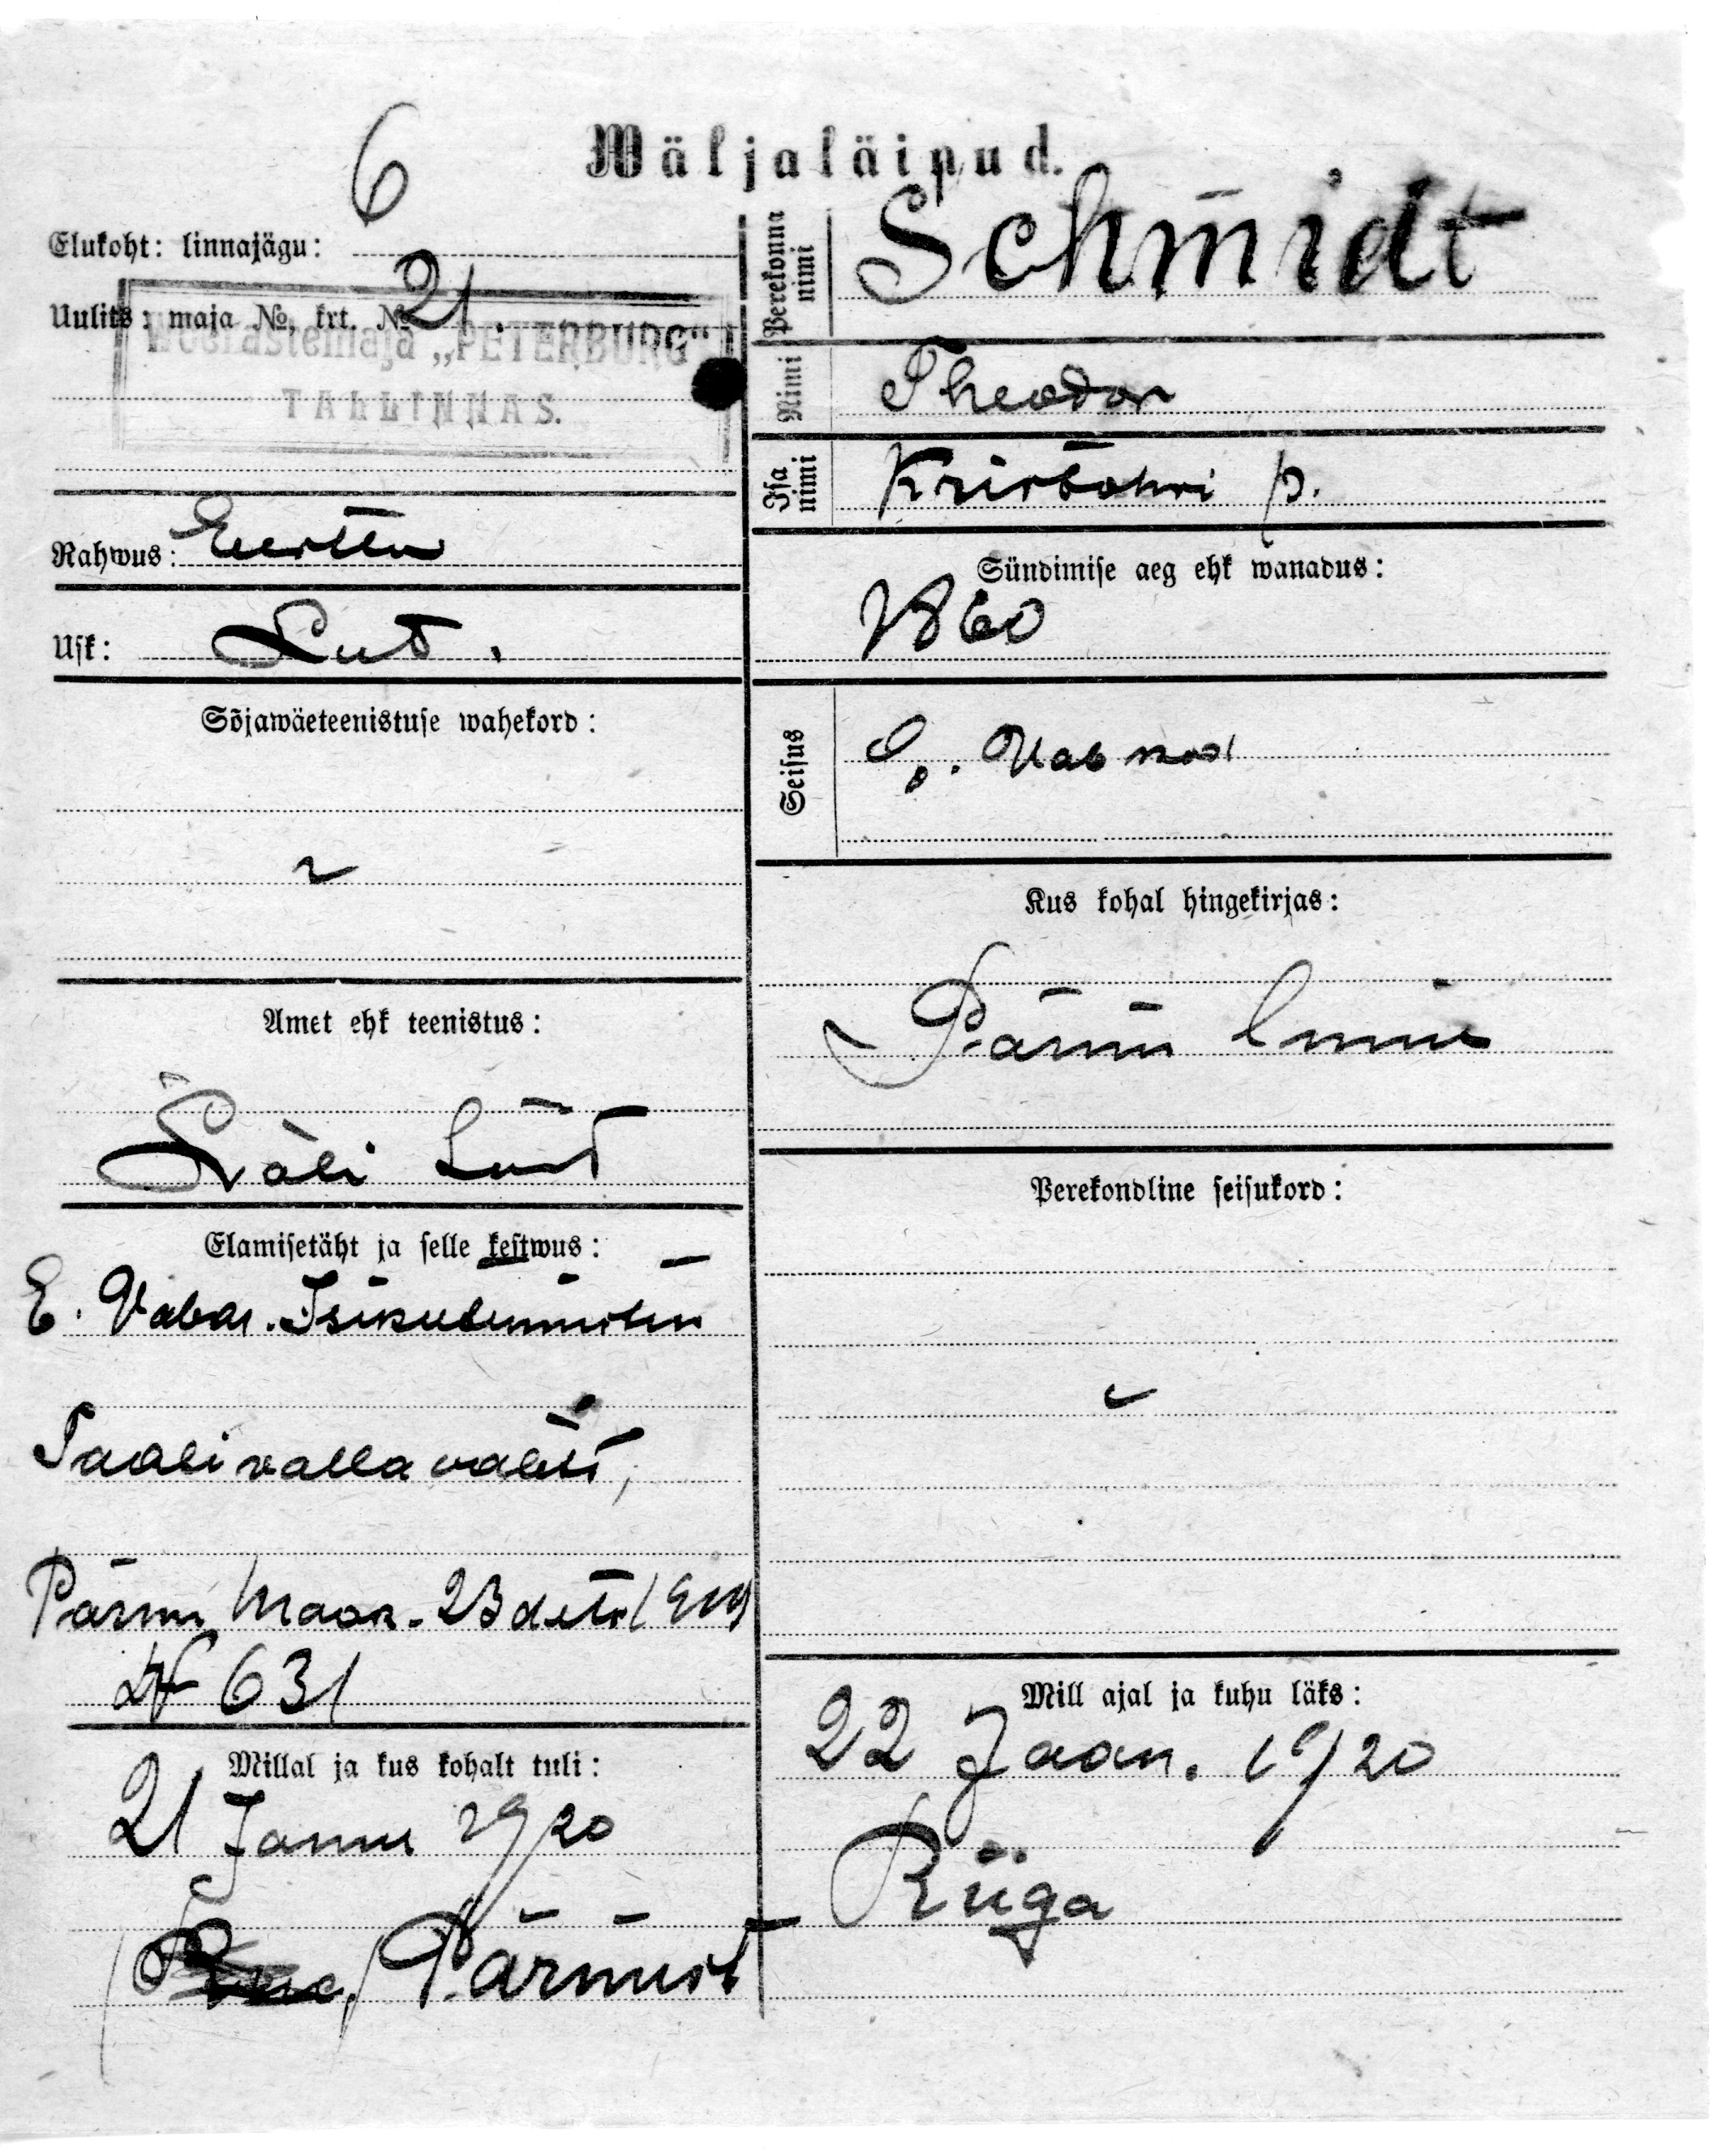 6
Wäljaläinud.
Elukoht: linnajägu:
Uulits: maja №, krt. № 21.
Wõerastemaja „PETERBURG“
TALLINNAS.
Rahwus: Eestln
Usk: Lut.
Sõjawäeteenistuse wahekord:
Amet ehk teenistus:
Elamisetäht ja selle kestwus:
E. Vabar. Isikutunnistus
Taali vallavalits,
Pärnu Maak. 23 dets 1919
№ 631
Millal ja kus kohalt tuli:
21 Jannu 1920
Pärnust
Perekonna nimi
Schmidt
Nimi
Theodor
Isa nimi
p.
Sündimise aeg ehk wanadus:
1860
Seisus
E. Vab kod
Kus kohal hingekirjas:
Pärnu linnas
Perekondline seisukord:
Mill ajal ja kuhu läks:
22 Jaan. 1920
Riiga